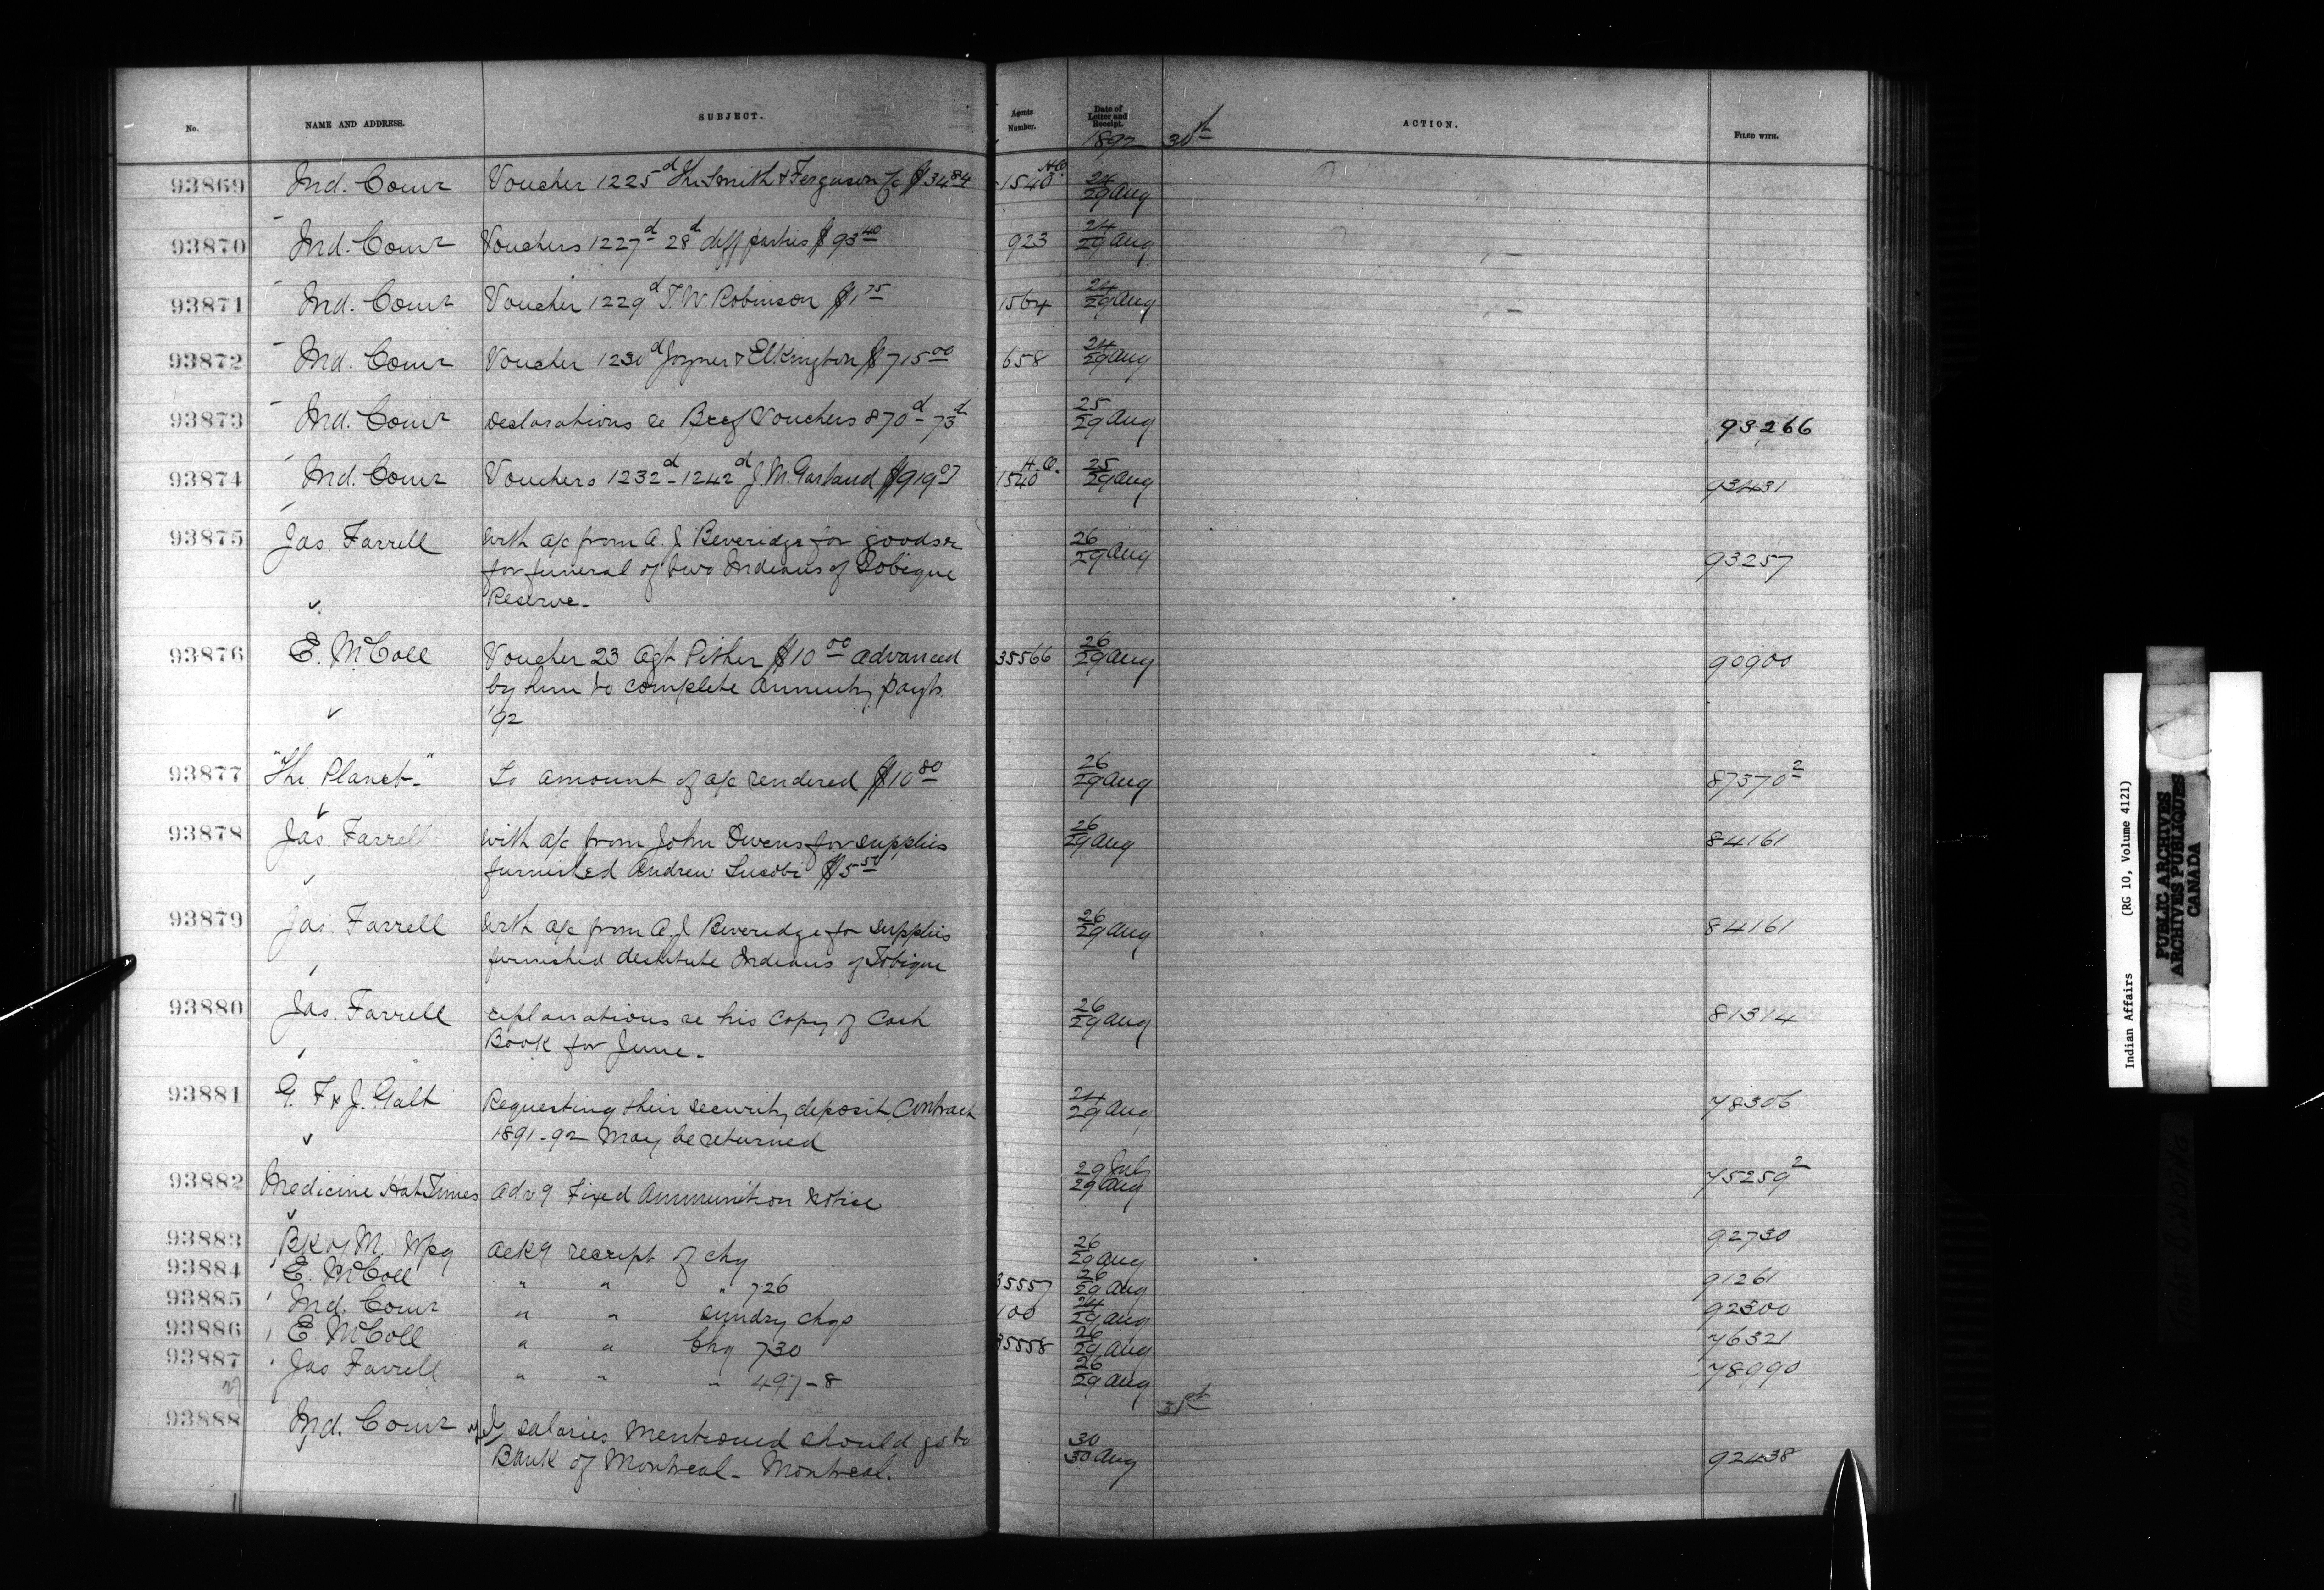 No. NAME AND ADDRESS. SUBJECT. Agents Number. Date of Letter and Receipt. ACTION. FILED WITH.
1892 30th
93869 Ind. Comr Voucher 1225d The Smith & Ferguson Co $34.84 1540 H.O. 24/29 Aug
93870 Ind. Comr Vouchers 1227d 28d diff parties $93.40 923 24/29 Aug
93871 Ind. Comr Voucher 1229d T.W. Robinson $1.75 1564 24/29 Aug
93872 Ind. Comr Voucher 1230d Joyner & Elkington $715.00 658 24/29 Aug
93873 Ind. Comr Declarations re Beef Vouchers 870d-73d 25/29 Aug 93266
93874 Ind. Comr Vouchers 1232d-1242d J.M. Garland $919.07 1540 H.O. 25/29 Aug 93431
93875 Jas. Farrell With a/c from A.J. Beveridge for goods re 26/29 Aug 93257
for funeral of two Indians of Tobique
Reserve.
93876 E. McColl Voucher 23 Agt Pither $10.00 advanced 35566 26/29 Aug 90900
by him to complete Annuity payts
'92
93877 "The Planet" To amount of a/c rendered $10.80 26/29 Aug 87370 2
93878 Jas. Farrell with a/c from John Owens for supplies 26/29 Aug 84161
furnished Andrew $5.50
93879 Jas. Farrell With a/c from A.J. Beveridge for supplies 26/29 Aug 84161
furnished destitute Indians of Tobique
93880 Jas. Farrell explanations re his Copy of Cash 26/29 Aug 81314
Book for June.
93881 G. F & J. Galt Requesting their security deposit, Contract 24/29 Aug 78306
1891-92 may be returned
93882 Medicine Hat Times Adv g Fixed Ammunition Notice 29 July/29 Aug 75259 2
93883 Bk of M. Wpg Ack g receipt of chq 26/29 Aug 92730
93884 E. McColl " " " 726 35557 26/29 Aug 91261
93885 Ind. Comr " " sundry chqs 100 24/29 Aug 92300
93886 E McColl " " Chq 730 35558 26/29 Aug 76321
93887 Jas Farrell " " " 497-8 26/29 Aug 78990
31st
93888 Ind. Comr salaries mentioned should go to 30/30 Aug 92438
Bank of Montreal - Montreal.
Indian Affairs (RG 10, Volume 4121)
PUBLIC ARCHIVES
ARCHIVES PUBLIQUES
CANADA